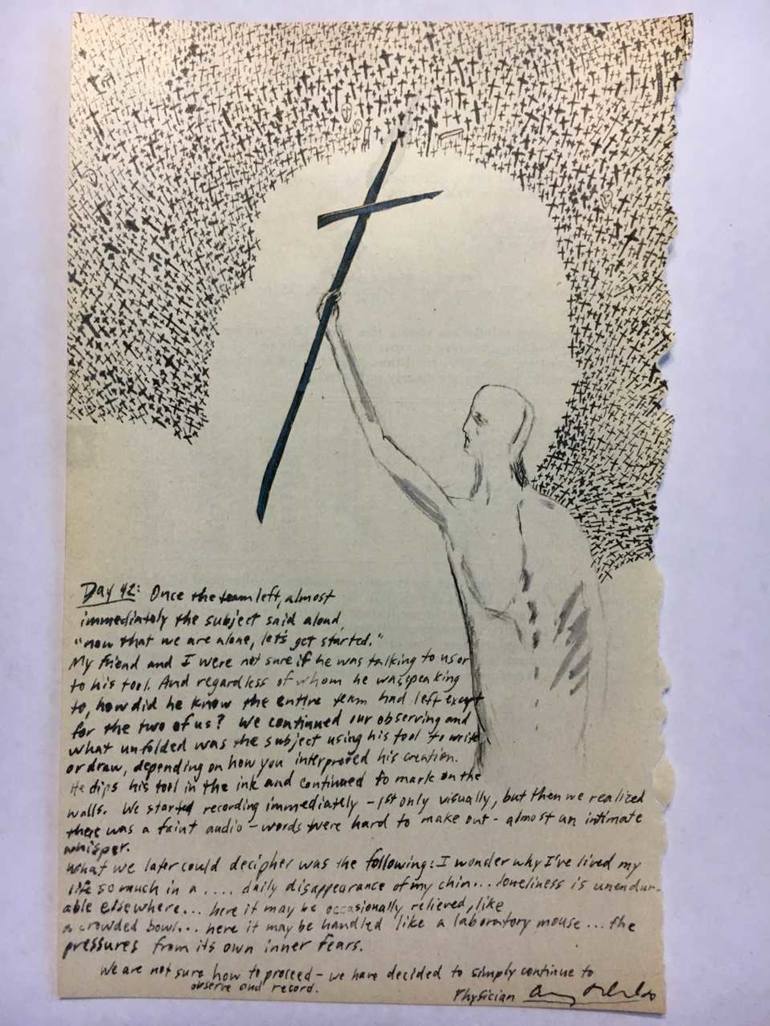 Day 42: Once the team left, almost
immediately the subject said aloud,
"now that we are alone, let's get started."
My friend and I were not sure if he was talking to us or
to his tool. And regardless of whom he was speaking
to, how did he know the entire team had left except
for the two of us? We continued our observing and
what unfolded was the subject using his tool to write
or draw, depending on how you interpreted his creation.
He dips his tool in the ink and continued to mark on the
walls. We started recording immediately - 1st only visually, but then we realized
there was a faint audio - words were hard to make out - almost an intimate
whisper.
What we later could decipher was the following: I wonder why I've lived my
life so much in a .... daily disappearance of my chin... loneliness is unendur-
able elsewhere... here it may be occasionally relieved, like
a crowded bowl... here it may be handled like a laboratory mouse ... the
pressures from its own inner fears.
We are not sure how to proceed - we have decided to simply continue to
observe and record.
Physician